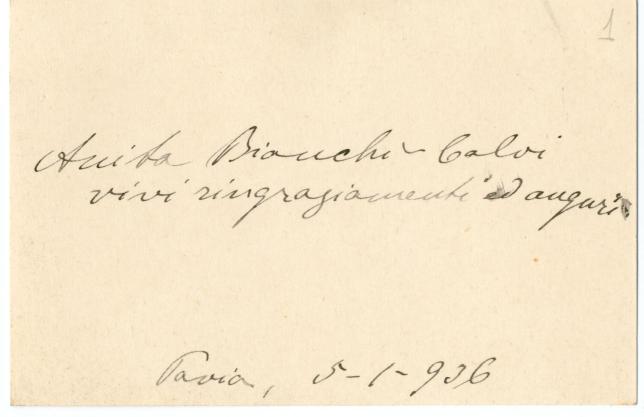 1
Anita Bianchi-Calvi
vivi ringraziamenti ed auguri
Pavia, 5-1-936